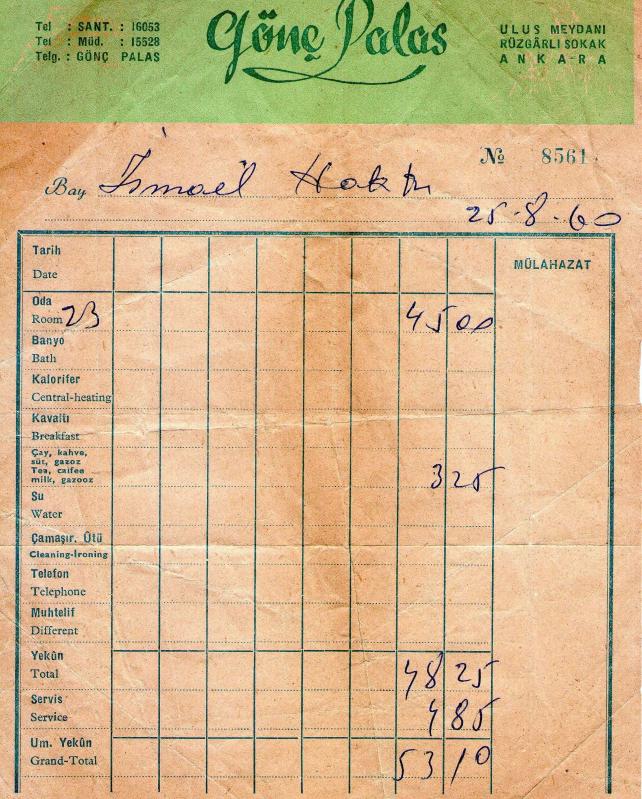 Tel : SANT. : 16053
Tel : Müd. : 15528
Telg. : GÖNÇ PALAS
Gönç Palas
ULUS MEYDANI
RÜZGÂRLI SOKAK
ANKARA
№ 8561
Bay İsmael Hakkı
25-8-60
Tarih
Date
MÜLÂHAZAT
Oda
Room 23 45 00
Banyo
Bath
Kalorifer
Central-heating
Kavaltı
Breakfast
Çay, kahve,
süt, gazoz
Tea, caifee
milk, gazooz 3 25
Su
Water
Çamaşır. Ütü
Cleaning-İroning
Telefon
Telephone
Muhtelif
Different
Yekûn
Total 48 25
Servis
Service 4 85
Um. Yekûn
Grand-Total 53 10